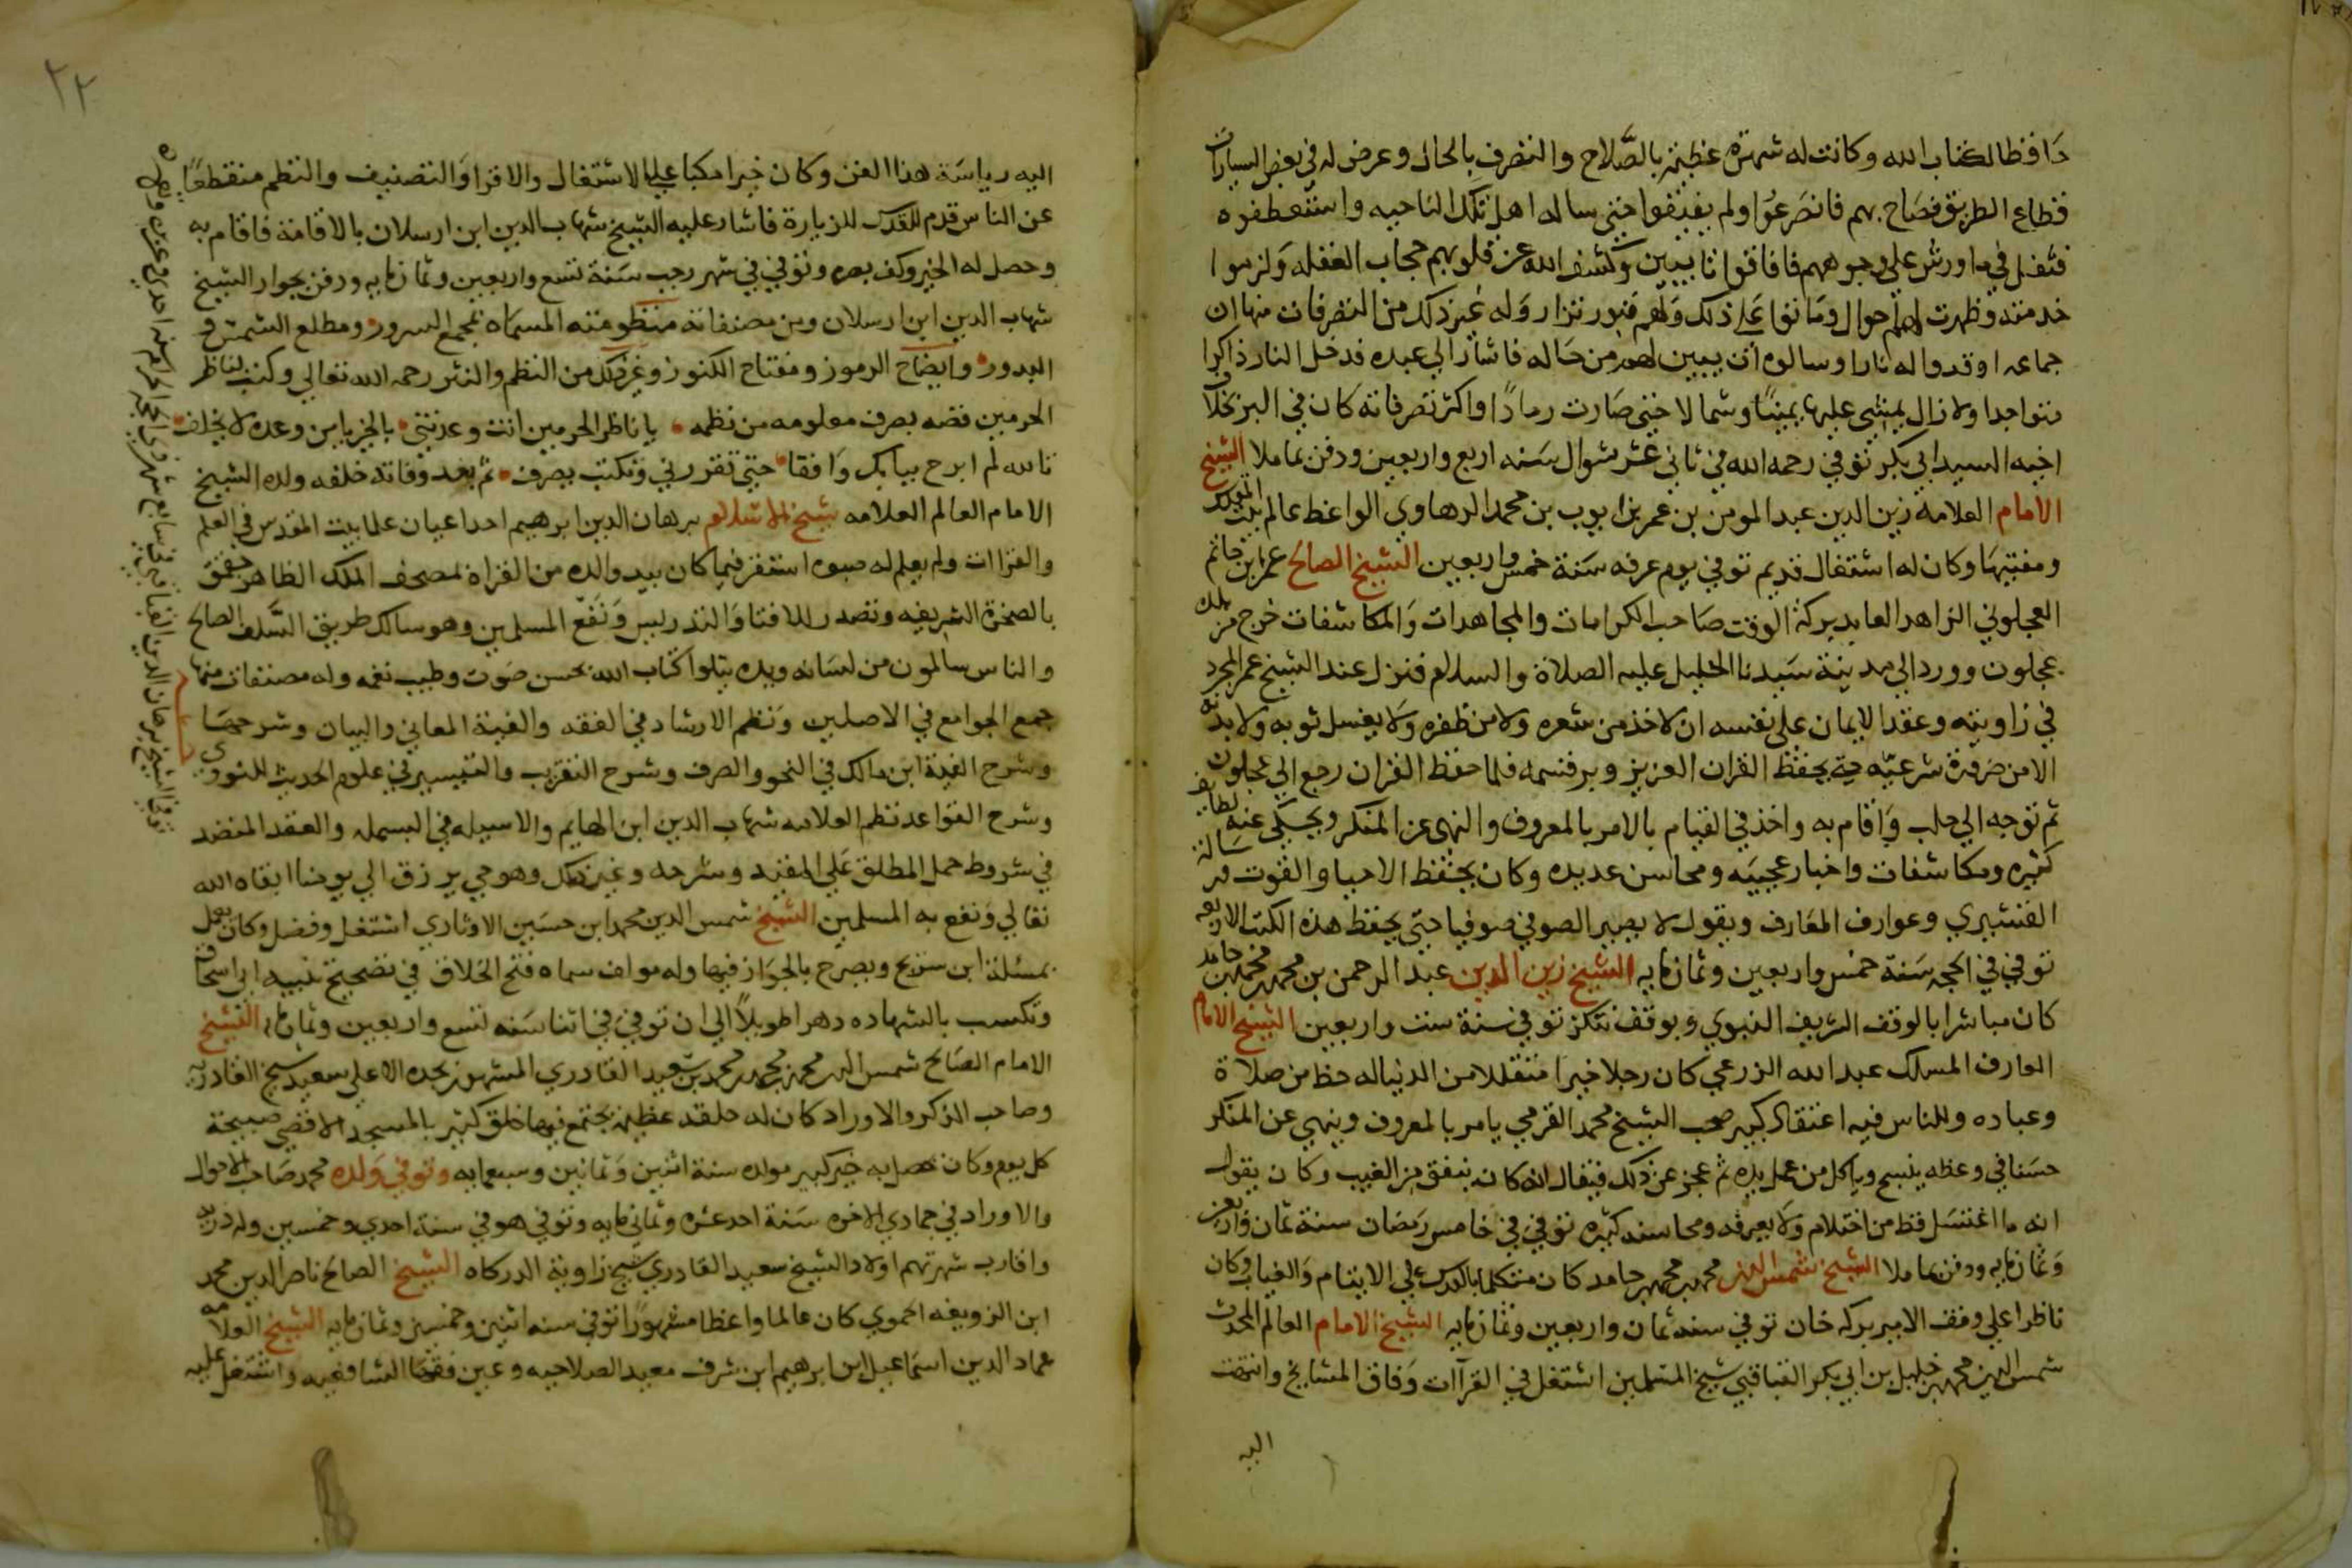 حافظا لكتاب الله وكانت له شهرة عظيمة بالصلاح والتصرف بالحال وعرض له في بعض السيارات
قطاع الطريق فصاح بهم فانصرعوا ولم يفيقوا حتى ساله اهل تلك الناحيه واستعطفوه
فتفل في ماورش على وجوههم فافاقوا تايبين وكشف الله عن قلوبهم حجاب الغفله ولزموا
خدمته وظهرت لهم احوال وماتوا على ذلك ولهم قبور تزار وله غير ذلك من التصرفات منها ان
جماعه اوقدوا له نارا وسالوه ان يبين لهم من حاله فاشار الى عبده فدخل النار ذاكرا
متواجدا ولا زال يمشي عليها يمينا وشمالا حتى صارت رمادا واكثر تصرفاته كان في البر بخلاف
اخيه السيد ابي بكر توفي رحمه الله في ثاني عشر شوال سنه اربع واربعين ودفن بماملا الشيخ
الامام العلامة زين الدين عبد المومن بن عمر بن ايوب بن محمد الرهاوي الواعظ عالم بيت المقدس
ومفتيها وكان له اشتغال قديم توفي يوم عرفه سنة خمس واربعين الشيخ الصالح عمر ابن حاتم
العجلوني الزاهد العابد بركة الوقت صاحب الكرامات والمجاهدات والمكاشفات خرج من بلده
عجلون وورد الى مدينة سيدنا الخليل عليه الصلاة والسلام فنزل عند الشيخ عمر المجرد
في زاويته وعقد الايمان على نفسه ان لا خذ من شعره ولا من ظفره ولا يغسل ثوبه ولا بدنه
الا من ضرورة شرعيه حتى يحفظ القران العزيز ويبر قسمه فلما حفظ القران رجع الى عجلون
ثم توجه الى حلب واقام به واخذ في القيام بالامر بالمعروف والنهى عن المنكر ويحكى عنه لطايف
كثيره ومكاشفات واخبار عجيبه ومحاسن عديده وكان يحفظ الاحيا والقوت ورسالة
القشيري وعوارف المعارف ويقول لا يصير الصوفي صوفيا حتى يحفظ هذه الكتب الاربعه
توفي في الحجه سنة خمس واربعين وثمانمايه الشيخ زين الدين عبد الرحمن بن محمد بن محمد بن حامد
كان مباشرا بالوقف الشريف النبوي وبوقف تنكز توفي سنة ست واربعين الشيخ الامام
العارف المسلك عبد الله الزرعي كان رجلا خيرا متقللا من الدنيا له حظ من صلاة
وعباده وللناس فيه اعتقاد كبير صحب الشيخ محمد القرمي يامر بالمعروف وينهي عن المنكر
حسنا في وعظه ينسج وياكل من عمل يده ثم عجز عن ذلك فيقال انه كان ينفق من الغيب وكان يقول
انه ما اغتسل قط من احتلام ولا يعرفه ومحاسنه كثيره توفي في خامس رمضان سنة ثمان واربعين
وثمانمايه ودفن بماملا الشيخ شمس الدين محمد بن محمد بن حامد كان متكلما بالقدس على الايتام والغياب وكان
ناظرا على وقف الامير بركه خان توفي سنه ثمان واربعين وثمانمايه الشيخ الامام العالم المحدث
شمس الدين محمد بن خليل بن ابي بكر القباقبي شيخ المسلمين اشتغل في القراات وفاق المشايخ وانتهت
اليه
٢٢
اليه رياسة هذا الفن وكان خيرا مكبا على الاشتغال والاقرا والتصنيف والنظم منقطعا
عن الناس قدم للقدس للزيارة فاشار عليه الشيخ شهاب الدين ابن ارسلان بالاقامة فاقام به
وحصل له الخير وكف بصره وتوفي في شهر رجب سنة تسع واربعين وثمانمايه ودفن بجوار الشيخ
شهاب الدين ابن ارسلان ومن مصنفاته منظومته المسماه بمجمع السرور ومطلع الشمس و
البدور وايضاح الرموز ومفتاح الكنوز وغير ذلك من النظم والنثر رحمه الله تعالى وكتب لناظر
الحرمين قصه بصرف معلومه من نظمه يا ناظر الحرمين انت وعدتني بالخير يا من وعده لا يخلف
تالله لم ابرح ببابك واقفا حتى تقررني وتكتب يصرف ثم بعد وفاته خلفه ولده الشيخ
الامام العالم العلامه شيخ الاسلام برهان الدين ابرهيم احد اعيان علما بيت المقدس في العلم
والقراات ولم يعلم له صبوه استقر فيما كان بيد والده من القراة لمصحف الملك الظاهر جقمق
بالصخرة الشريفه وتصدر للافتا والتدريس ونفع المسلمين وهو سالك طريق السلف الصالح
والناس سالمون من لسانه ويده يتلوا كتاب الله بحسن صوت وطيب نغمه وله مصنفات منها
جمع الجوامع في الاصلين ونظم الارشاد في الفقه والفية المعاني والبيان وشرحها
وشرح الفية ابن مالك في النحو والصرف وشرح التقريب والتيسير في علوم الحديث للنووي
وشرح القواعد نظم العلامه شهاب الدين ابن الهايم والاسيله في البسمله والعقد المنضد
في شروط حمل المطلق على المقيد وشرحه وغير ذلك وهو حي يرزق الى يومنا ابقاه الله
تعالى ونفع به المسلمين الشيخ شمس الدين محمد ابن حسين الاوتاري اشتغل وفضل وكان يعمل
بمسئلة ابن سريج ويصرح بالجواز فيها وله مولف سماه فتح الخلاق في تصحيح تنبيه ابي اسحاق
وتكسب بالشهاده دهرا طويلا الى ان توفي في اثنا سنه تسع واربعين وثمانمايه الشيخ
الامام الصالح شمس الدين محمد بن محمد بن محمد بن سعيد القادري المشهور بجده الاعلى سعيد شيخ القادريه
وصاحب الذكر والاوراد كان له حلقه عظيمه يجتمع فيها خلق كثير بالمسجد الاقصى صبيحة
كل يوم وكان يحصل به خير كبير مولده سنة اثنين وثمانين وسبعمايه وتوفي ولده محمد صاحب الاحوال
والاوراد في جمادي الاخره سنة احد عشره وثمانمايه وتوفي هو في سنة احدى وخمسين وله ذريه
واقارب شهرتهم اولاد الشيخ سعيد القادري شيخ زاوية الدركاه الشيخ الصالح ناصر الدين محمد
ابن الزويغه الحموي كان عالما واعظا مشهورا توفي سنه اثنين وخمسين وثمانمايه الشيخ العلامه
عماد الدين اسماعيل ابن ابرهيم ابن شرف معيد الصلاحيه وعين فقها الشافعيه واشتغل عليه
توفي الشيخ برهان الدين